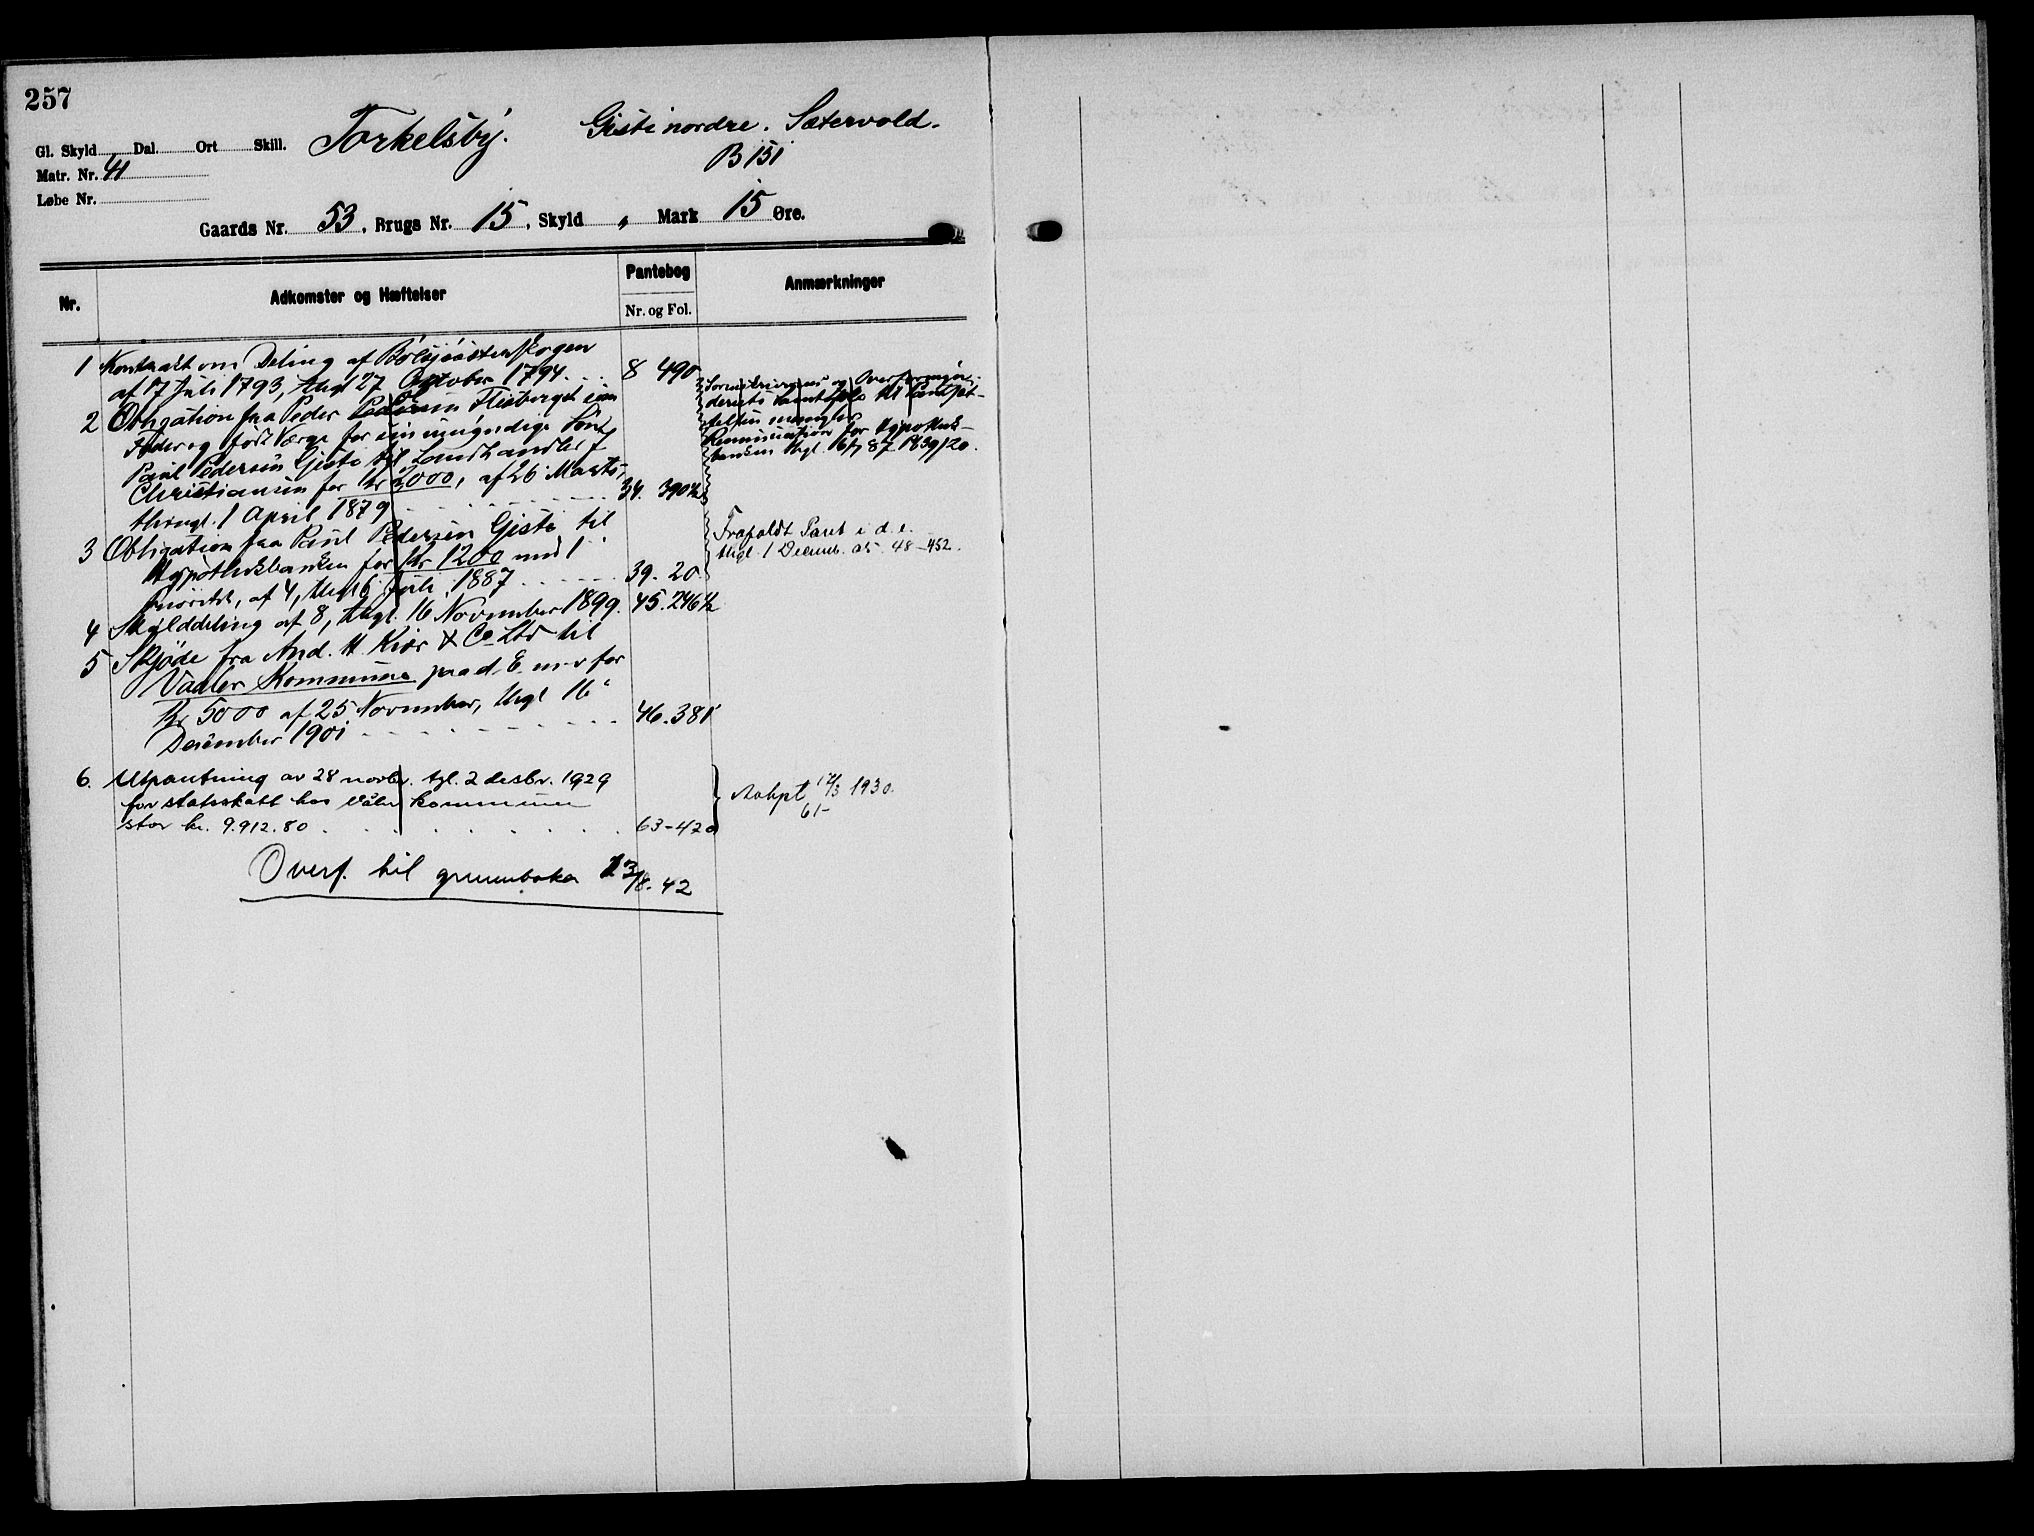 257
Torkelsby. Gisti nordre. Sætervold.
B 151
Gl. Skyld Dal. Ort Skill.
Matr. Nr. 41
Løbe Nr.
Gaards Nr. 53, Brugs Nr. 15, Skyld " Mark 15 Øre.
Nr. Adkomster og Hæftelser Pantebog Nr. og Fol. Anmærkninger
1 Kontrakt om Deling af
af 17 Juli 1793, thgl 27 October 1794. 8 490
2 Obligation fra Peder Pedersen Flisberget som
Fader og født Værge for sin umyndige Søn
Paul Pedersen Gisti til Landhandler
Christiansen for Kr 2000, af 26 Marts,
thingl. 1 April 1879 34. 390½
og Overformyn-
deriets Samtykke til Pantsæt-
telsen mangler
Renunciation for Hypothek-
banken thgl. 16/7 87 39/20.
3 Obligation fra Paul Pedersen Gisti til
Hypothekbanken for Kr 1200 med 1
Prioritet, af 4, thgl 16 Juli 1887 39. 20.
Frafaldt Pant i d. e.
thgl. 1 Decemb. 05. 48-452.
4 Skylddeling af 8, thgl. 16 November 1899. 45. 246½
5 Skjøde fra And. H. Kiær & Co Ltd til
Vaaler Kommune paa d. E. m. v for
Kr 5000 af 25 November, thgl 16
December 1901 46. 381
6. Utpantning av 28 novbr. tgl. 2 desbr. 1929
for statsskatt hos Våler kommune
stor kr. 9.912.80 63-420
Avlyst 12/3 1930.
61-
Overf. til grunnboka 13/8. 42